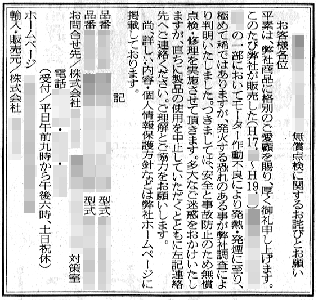 無償点検に関するお詫びとお願い
お客様各位
平素は、弊社商品に格別のご愛顧を賜り、厚く御礼申し上げます。
このたび弊社が販売した(H17、H19、
の一部においてモーター作動不良により発熱・発煙に至り、
極めて稀ではありますが、発火する恐れのある事が弊社調査によ
り判明いたしました。つきましては、安全と事故防止のため無償
点検・修理を実施させて頂きます。多大なご迷惑をおかけいたし
ますが、直ちに製品の使用を中止していただくとともに左記連絡
先へご連絡ください。ご理解とご協力をお願いします。
尚、詳しい内容・個人情報保護方針などは弊社ホームページに
掲載しております。
記
品番 型式
品番 型式
お問合せ先/株式会社 対策室
電話
(受付/平日午前九時から午後六時、土日祝休)
ホームページ
輸入・販売元/株式会社